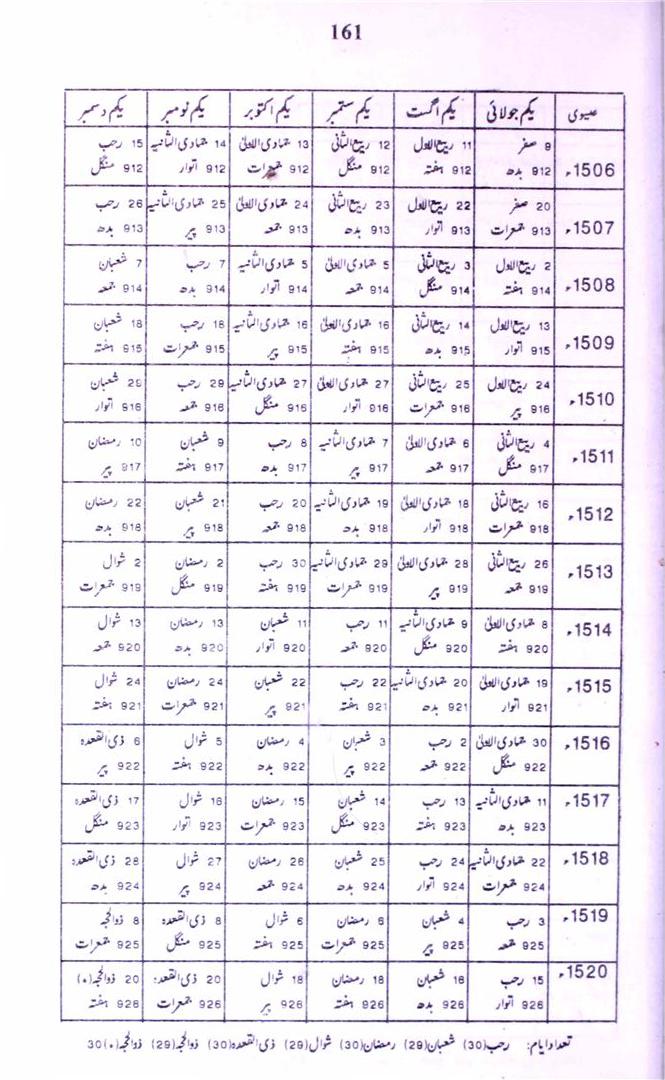 161
عیسوی یکم جولائی یکم اگست یکم ستمبر یکم اکتوبر یکم نومبر یکم دسمبر
1506ء 9 صفر 11 ربیع الاول 12 ربیع الثانی 13 جمادی الاولیٰ 14 جمادی الثانیہ 15 رجب
912 بدھ 912 ہفتہ 912 منگل 912 جمعرات 912 اتوار 912 منگل
1507ء 20 صفر 22 ربیع الاول 23 ربیع الثانی 24 جمادی الاولیٰ 25 جمادی الثانیہ 26 رجب
913 جمعرات 913 اتوار 913 بدھ 913 جمعہ 913 پیر 913 بدھ
1508ء 2 ربیع الاول 3 ربیع الثانی 5 جمادی الاولیٰ 5 جمادی الثانیہ 7 رجب 7 شعبان
914 ہفتہ 914 منگل 914 جمعہ 914 اتوار 914 بدھ 914 جمعہ
1509ء 13 ربیع الاول 14 ربیع الثانی 16 جمادی الاولیٰ 16 جمادی الثانیہ 18 رجب 18 شعبان
915 اتوار 915 بدھ 915 ہفتہ 915 پیر 915 جمعرات 915 ہفتہ
1510ء 24 ربیع الاول 25 ربیع الثانی 27 جمادی الاولیٰ 27 جمادی الثانیہ 29 رجب 29 شعبان
916 پیر 916 جمعرات 916 اتوار 916 منگل 916 جمعہ 916 اتوار
1511ء 4 ربیع الثانی 6 جمادی الاولیٰ 7 جمادی الثانیہ 8 رجب 9 شعبان 10 رمضان
917 منگل 917 جمعہ 917 پیر 917 بدھ 917 ہفتہ 917 پیر
1512ء 16 ربیع الثانی 18 جمادی الاولیٰ 19 جمادی الثانیہ 20 رجب 21 شعبان 22 رمضان
918 جمعرات 918 اتوار 918 بدھ 918 جمعہ 918 پیر 918 بدھ
1513ء 26 ربیع الثانی 28 جمادی الاولیٰ 29 جمادی الثانیہ 30 رجب 2 رمضان 2 شوال
919 جمعہ 919 پیر 919 جمعرات 919 ہفتہ 919 منگل 919 جمعرات
1514ء 8 جمادی الاولیٰ 9 جمادی الثانیہ 11 رجب 11 شعبان 13 رمضان 13 شوال
920 ہفتہ 920 منگل 920 جمعہ 920 اتوار 920 بدھ 920 جمعہ
1515ء 19 جمادی الاولیٰ 20 جمادی الثانیہ 22 رجب 22 شعبان 24 رمضان 24 شوال
921 اتوار 921 بدھ 921 ہفتہ 921 پیر 921 جمعرات 921 ہفتہ
1516ء 30 جمادی الاولیٰ 2 رجب 3 شعبان 4 رمضان 5 شوال 6 ذی القعدہ
922 منگل 922 جمعہ 922 پیر 922 بدھ 922 ہفتہ 922 پیر
1517ء 11 جمادی الثانیہ 13 رجب 14 شعبان 15 رمضان 16 شوال 17 ذی القعدہ
923 بدھ 923 ہفتہ 923 منگل 923 جمعرات 923 اتوار 923 منگل
1518ء 22 جمادی الثانیہ 24 رجب 25 شعبان 26 رمضان 27 شوال 28 ذی القعدہ
924 جمعرات 924 اتوار 924 بدھ 924 جمعہ 924 پیر 924 بدھ
1519ء 3 رجب 4 شعبان 6 رمضان 6 شوال 8 ذی القعدہ 8 ذوالحجہ
925 جمعہ 925 پیر 925 جمعرات 925 ہفتہ 925 منگل 925 جمعرات
1520ء 15 رجب 16 شعبان 18 رمضان 18 شوال 20 ذی القعدہ 20 ذوالحجہ (۰)
926 اتوار 926 بدھ 926 ہفتہ 926 پیر 926 جمعرات 926 ہفتہ
تعداد ایام: رجب (30) شعبان (29) رمضان (30) شوال (29) ذی القعدہ (30) ذوالحجہ (29) ذوالحجہ (۰) 30